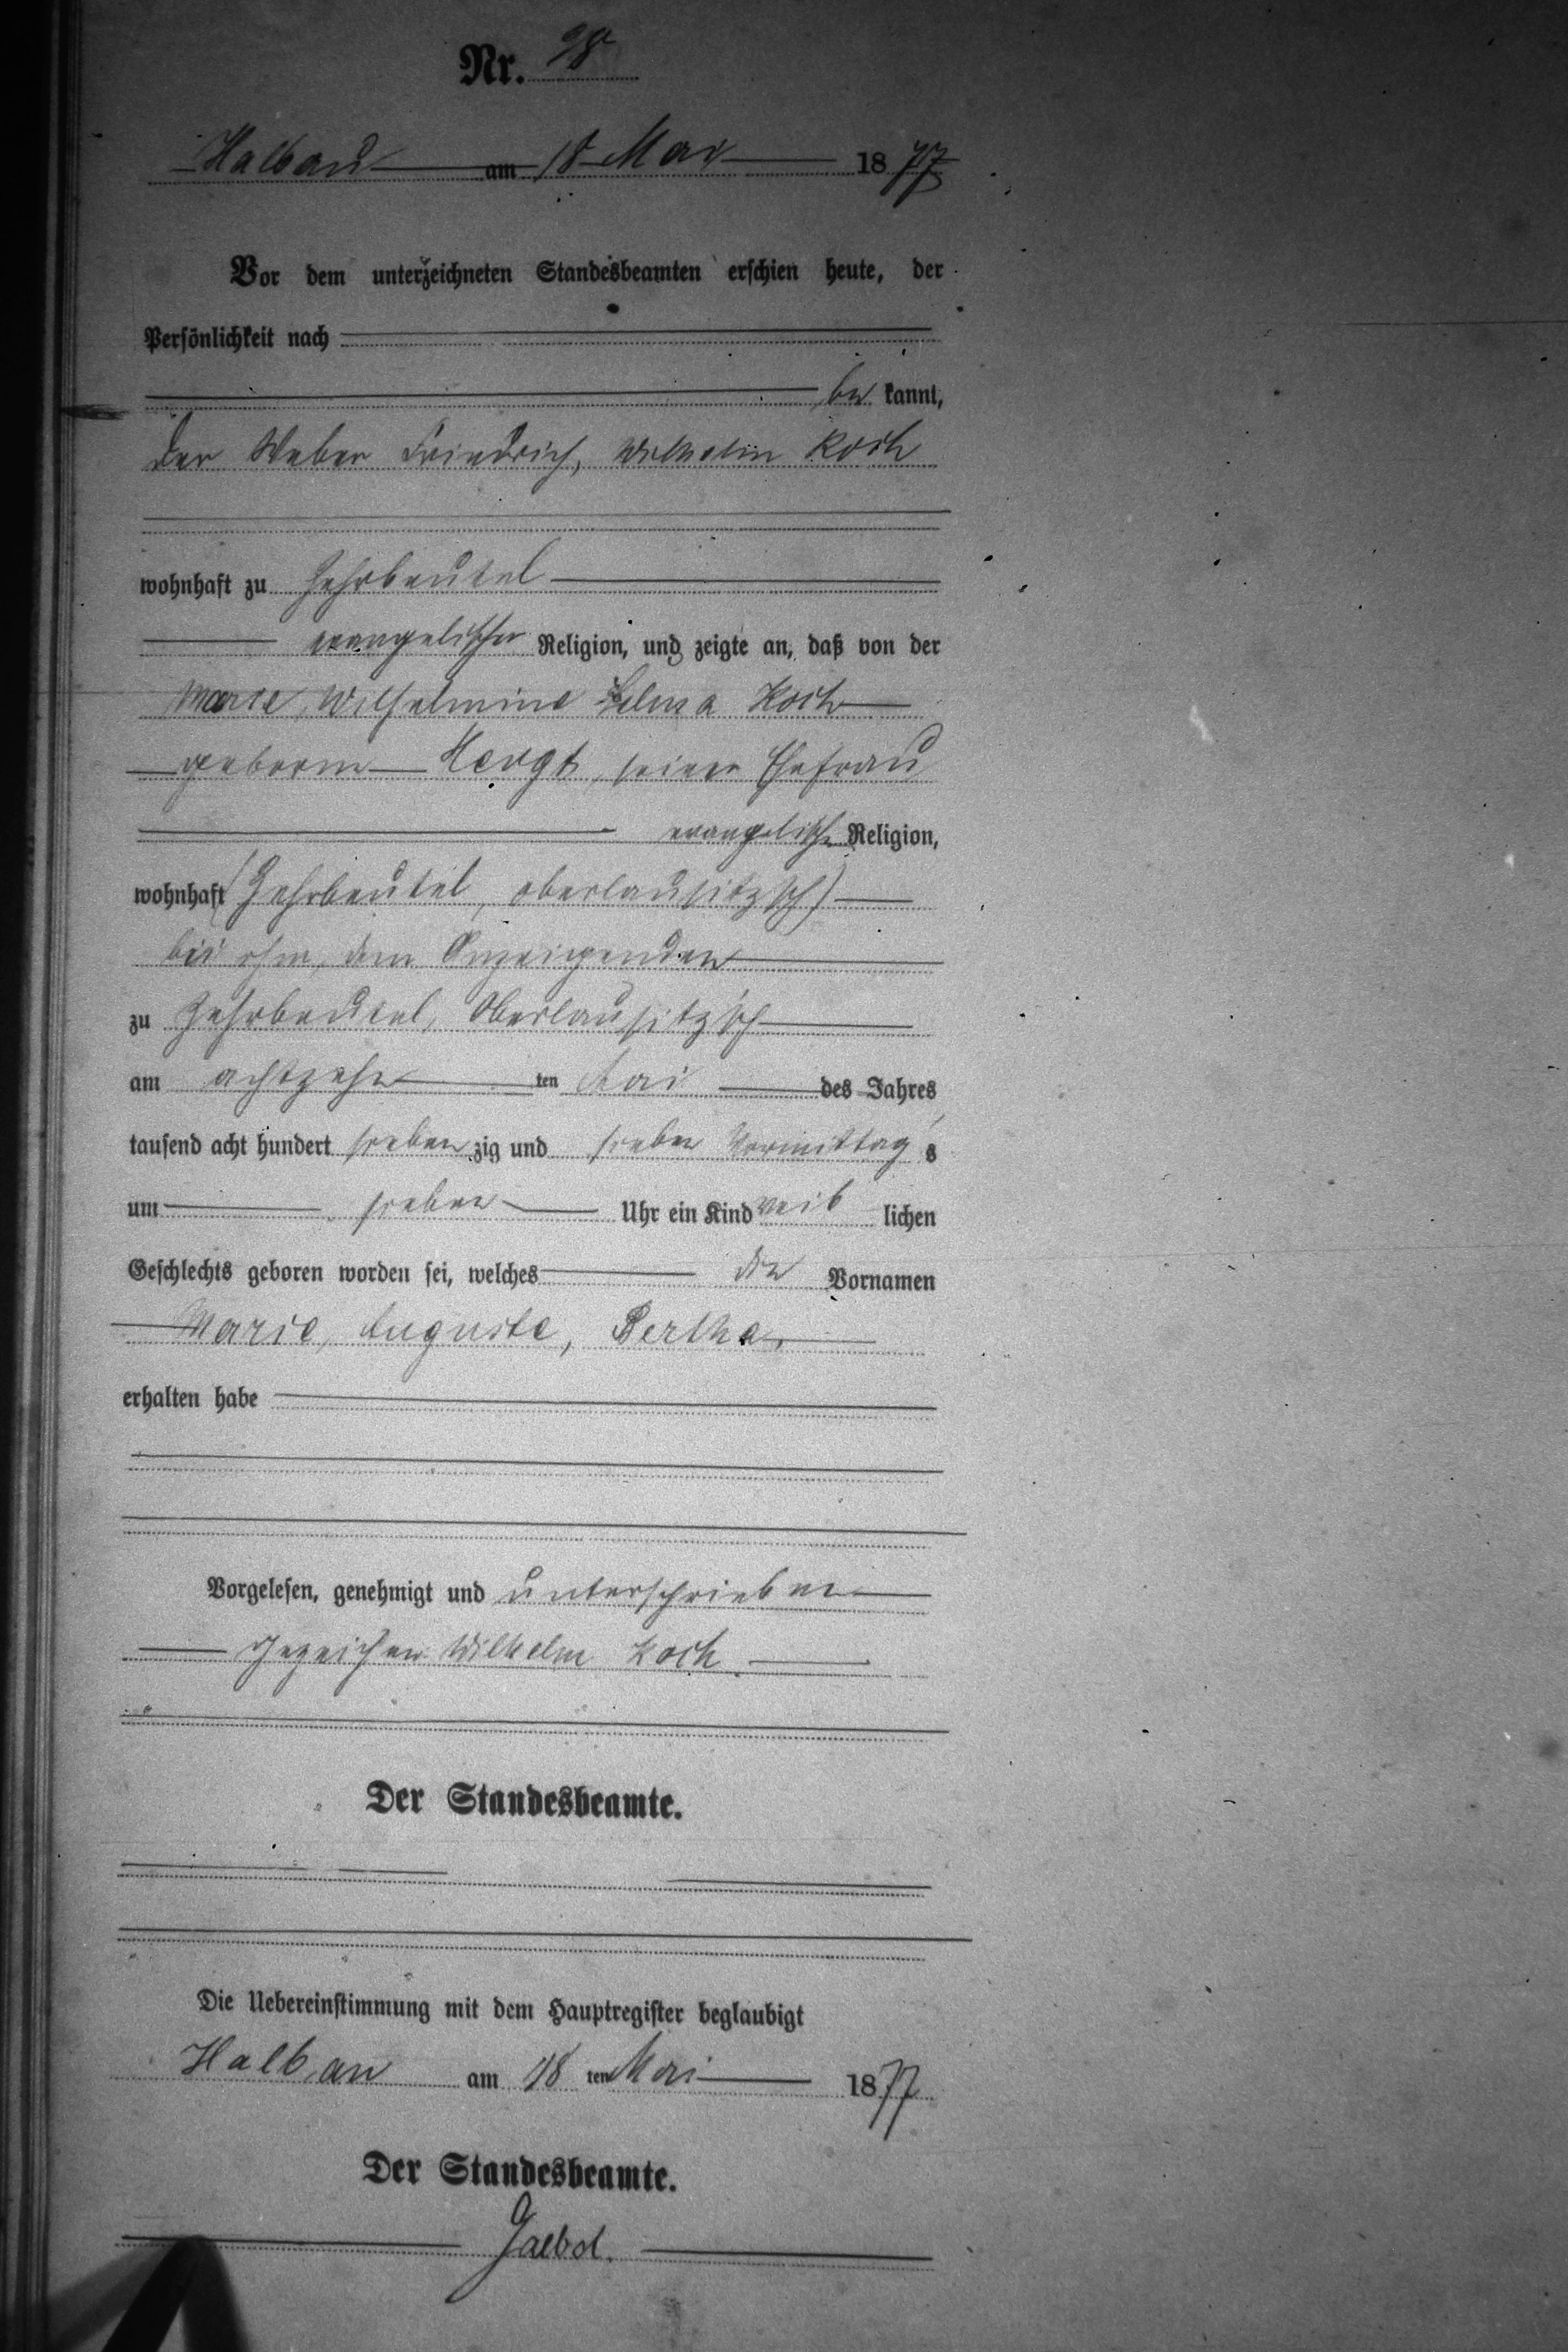 Nr. 28
Halbau am 18 Mai 1877
Vor dem unterzeichneten Standesbeamten erschien heute, der
Persönlichkeit nach
be kannt,
der Weber Friedrich, Wilhelm Koch
wohnhaft zu Zehrbeutel
evangelischer Religion, und zeigte an, daß von der
Marie, Wilhelmine Selma Koch
geborne Hergt, seiner Ehefrau
evangelischer Religion,
wohnhaft (Zehrbeutel, oberlausitzsch)
bei ihm, dem Anzeigenden
zu Zehrbeutel, Oberlausitzsch
am achtzehn ten Mai des Jahres
tausend acht hundert sieben zig und sieben Vormittag s
um sieben Uhr ein Kind weib lichen
Geschlechts geboren worden sei, welches die Vornamen
Marie, Auguste, Bertha,
erhalten habe
Vorgelesen, genehmigt und unterschrieben
Wilhelm Koch
Der Standesbeamte.
Die Uebereinstimmung mit dem Hauptregister beglaubigt
Halbau am 18 ten Mai 1877
Der Standesbeamte.